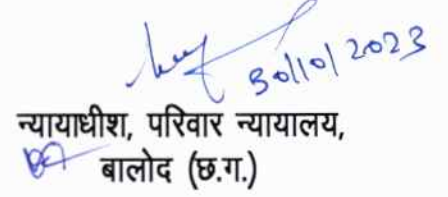 30/10/2023
न्यायाधीश, परिवार न्यायालय,
बालोद (छ.ग.)